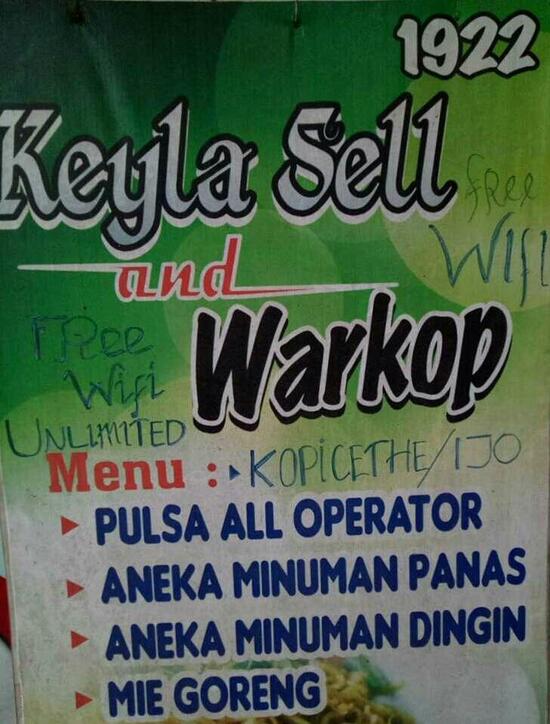 1922
Keyla Sell
free
Wifi
and
Warkop
Free
Wifi
UNLIMITED
Menu : KOPICETHE/IJO
PULSA ALL OPERATOR
ANEKA MINUMAN PANAS
ANEKA MINUMAN DINGIN
MIE GORENG